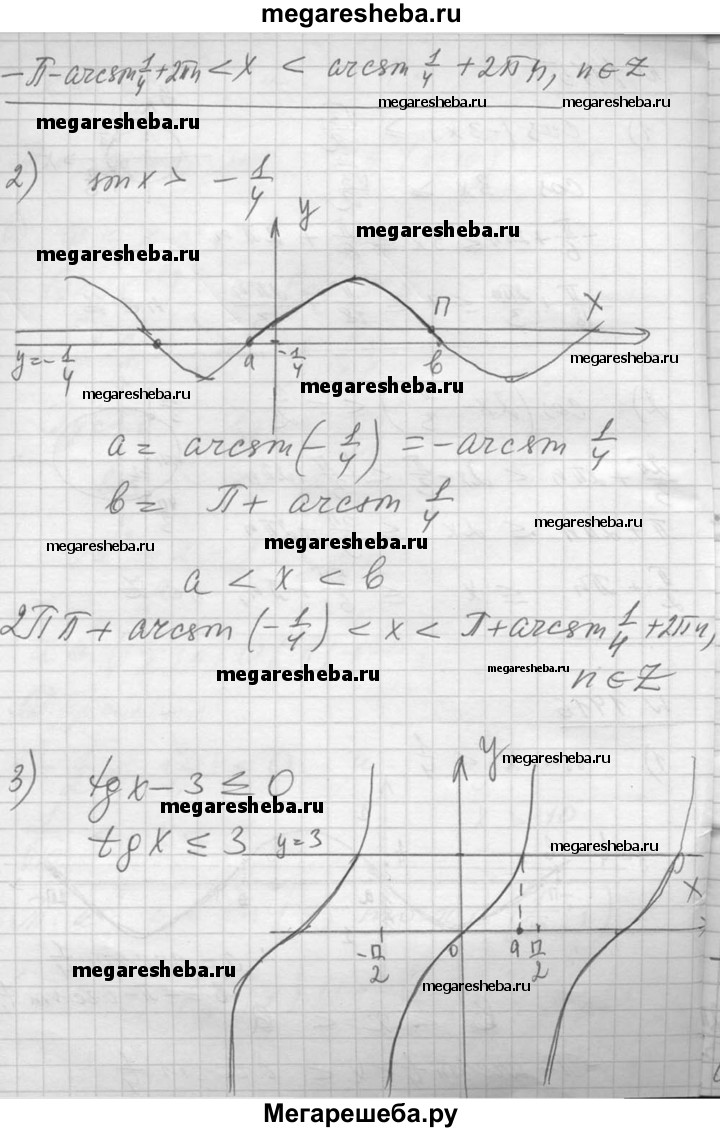 megaresheba.ru
-π-arcsin 1/4+2πn < x < arcsin 1/4 + 2πn, n∈Z
megaresheba.ru megaresheba.ru
megaresheba.ru
2) sin x > - 1/4
y
megaresheba.ru
megaresheba.ru
π x
y=-1/4 a -1/4 b
megaresheba.ru
megaresheba.ru
megaresheba.ru
a = arcsin(-1/4) = -arcsin 1/4
b = π+ arcsin 1/4
megaresheba.ru
megaresheba.ru megaresheba.ru
a < x < b
2πn + arcsin (-1/4) < x < π+arcsin 1/4 +2πn,
megaresheba.ru megaresheba.ru
n∈Z
3) tg x - 3 ≤ 0
y
megaresheba.ru
megaresheba.ru
tg x ≤ 3 y=3
megaresheba.ru
x
-π/2 0 a π/2
megaresheba.ru
megaresheba.ru
Мегарешеба.ру